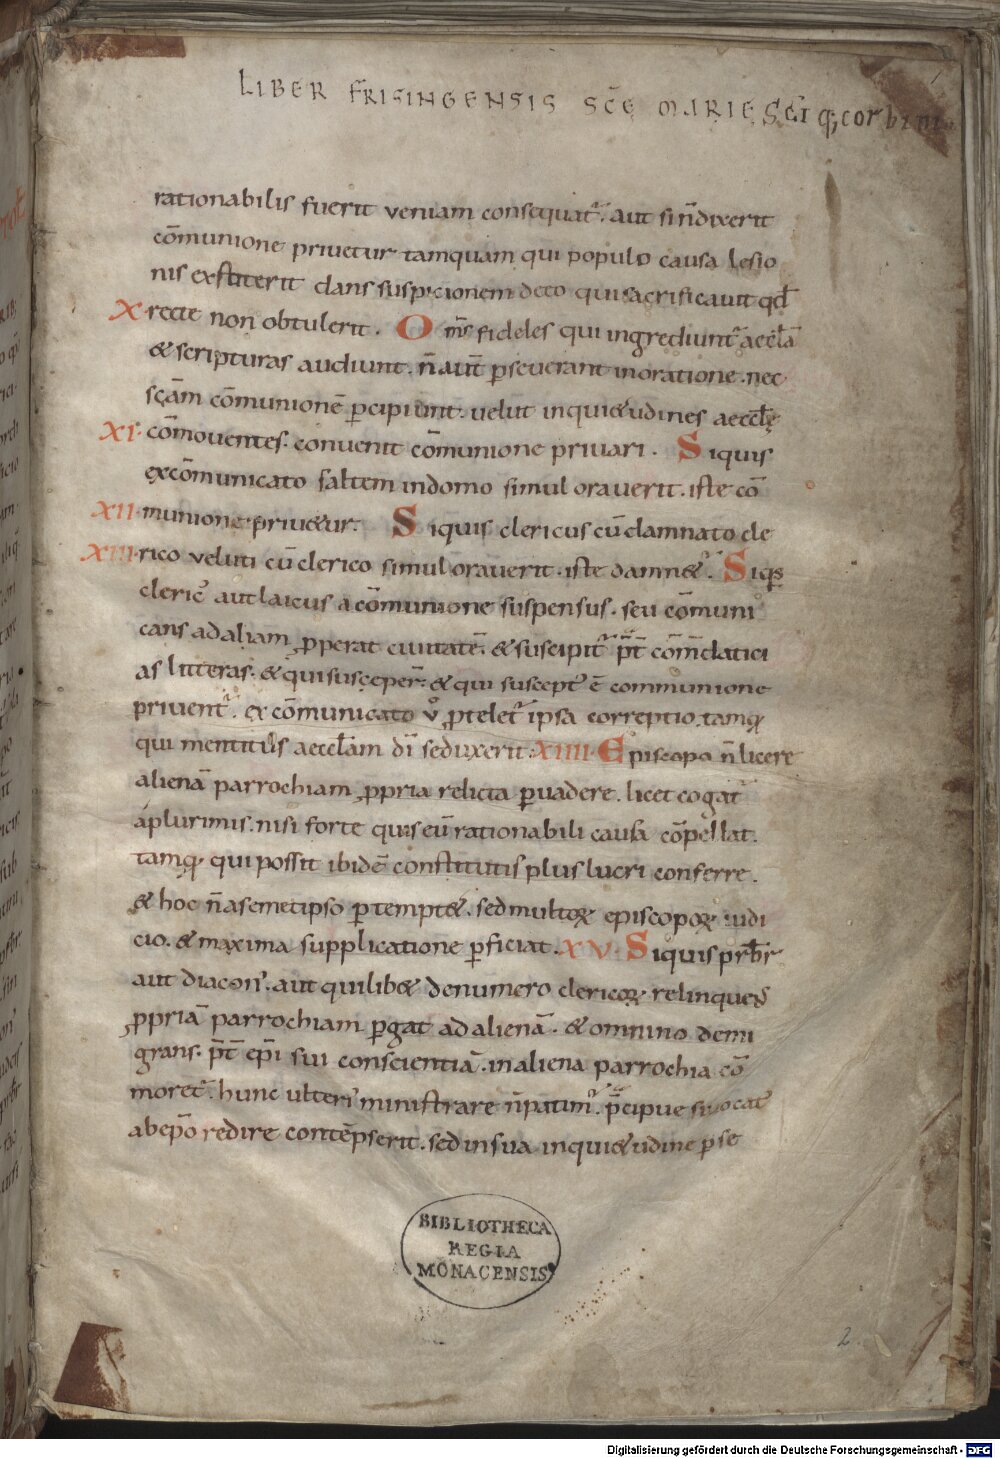 LIBER FRISINGENSIS SCE MARIE SCI q; corbini
rationabilis fuerit veniam consequat᷑. aut sin̄dixerit
cōmunione privetur tamquam qui populo causa lesio
nis exstiterit dans suspicionem deeo quisacrificavit qđ
X recte non obtulerit. Om̄s fideles qui ingrediunt᷑ aeccl̄a
& scripturas audiunt. n̄ aut̄ ꝑseverant inoratione. nec
sc̄am cōmunionē ꝑcipiunt. velut inqui&udines aeccl̄ę
XI. cōmoventes. convenit cōmunione privari. Siquis
excōmunicato saltem indomo simul oraverit. iste cō
XII. munione priv&ur. Siquis clericus cū damnato cle
XIII. rico veluti cū clerico simul oraverit. iste damn&᷑. Siqs
cleric᷒ aut laicus a cōmunione suspensus. seu cōmuni
cans ad aliam ꝓperat civitatē. & suscipit᷑ p̄t̄ com̄datici
as litteras. & quisusceper̄. & qui suscept᷒ ē communione
privent᷑. excōmunicato v̊ ꝓtelet᷑ ipsa correptio. tamq̄
qui mentitus aeccl̄am dī seduxerit. XIIII. Episcopo n̄ licere
alienā parrochiam ꝓpria relicta ꝑvadere. licet cogat᷑
aplurimis. nisi forte quis eū rationabili causa cōpellat.
tamq̄ qui possit ibidē constitutis plus lucri conferre.
& hoc n̄ asemetipso ꝑtempt&. sed multoꝝ episcopoꝝ iudi
cio. & maxima supplicatione ꝑficiat. XV. Siquis prb̄r
aut diacon᷒. aut quilib& denumero clericoꝝ relinquens
ꝓpriā parrochiam ꝑgat ad alienā. & omnino demi
grans. p̄t̄ ep̄i sui conscientiā. inaliena parrochia cō
moret᷑. hunc ulteri᷒ ministrare n̄ patim᷒. p̄cipue si vocat᷒
abep̄o redire contēpserit. sed insua inqui&udine ꝑse
BIBLIOTHECA
REGIA
MONACENSIS
2
Digitalisierung gefördert durch die Deutsche Forschungsgemeinschaft - DFG